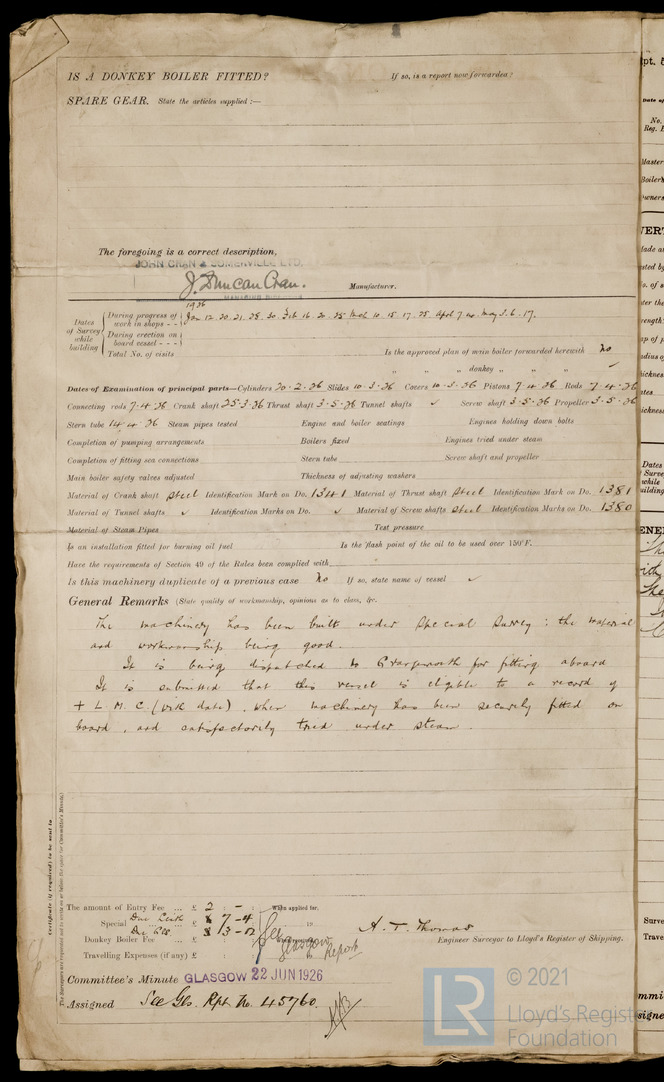 IS A DONKEY BOILER FITTED? If so, is a report now forwarded?
SPARE GEAR. State the articles supplied :—
The foregoing is a correct description,
JOHN CRAN & SOMERVILLE LTD.
J. Duncan Cran. Manufacturer.
MANAGING DIRECTOR
1926
Dates of Survey while building
During progress of work in shops - - Jan 12. 20. 21. 28. 30. Feb 16. 20. 25. Mch 10. 15. 17. 25. Apl 7. 14. May 3. 6. 17.
During erection on board vessel - - -
Total No. of visits
Is the approved plan of main boiler forwarded herewith No
" " " donkey " " " ✓
Dates of Examination of principal parts—Cylinders 20.2.26 Slides 10.3.26 Covers 10.3.26 Pistons 7.4.26 Rods 7.4.26
Connecting rods 7.4.26 Crank shaft 25.3.26 Thrust shaft 3.5.26 Tunnel shafts ✓ Screw shaft 3.5.26 Propeller 3.5.26
Stern tube 14.4.26 Steam pipes tested Engine and boiler seatings Engines holding down bolts
Completion of pumping arrangements Boilers fixed Engines tried under steam
Completion of fitting sea connections Stern tube Screw shaft and propeller
Main boiler safety valves adjusted Thickness of adjusting washers
Material of Crank shaft Steel Identification Mark on Do. 1341 Material of Thrust shaft Steel Identification Mark on Do. 1381
Material of Tunnel shafts ✓ Identification Marks on Do. ✓ Material of Screw shafts Steel Identification Marks on Do. 1380
Material of Steam Pipes Test pressure
Is an installation fitted for burning oil fuel Is the flash point of the oil to be used over 150°F.
Have the requirements of Section 49 of the Rules been complied with
Is this machinery duplicate of a previous case No If so, state name of vessel ✓
General Remarks (State quality of workmanship, opinions as to class, &c.
The machinery has been built under special survey : the material
and workmanship being good.
It is being dispatched to Grangemouth for fitting aboard
It is submitted that this vessel is eligible to a record of
+ L.M.C. (with date). when machinery has been securely fitted on
board, and satisfactorily tried under steam.
Certificate (if required) to be sent to
The amount of Entry Fee ... £ 2 : - : When applied for.
Special Due Leith £ 7-4
Due Gls. £ 3-12
Donkey Boiler Fee ... £
Travelling Expenses (if any) £
See Glasgow Report
A. T. Thomas
Engineer Surveyor to Lloyd's Register of Shipping.
Committee's Minute GLASGOW 22 JUN 1926
Assigned See Gls. Rpt. No. 45760.
LR © 2021
Lloyd's Register
Foundation